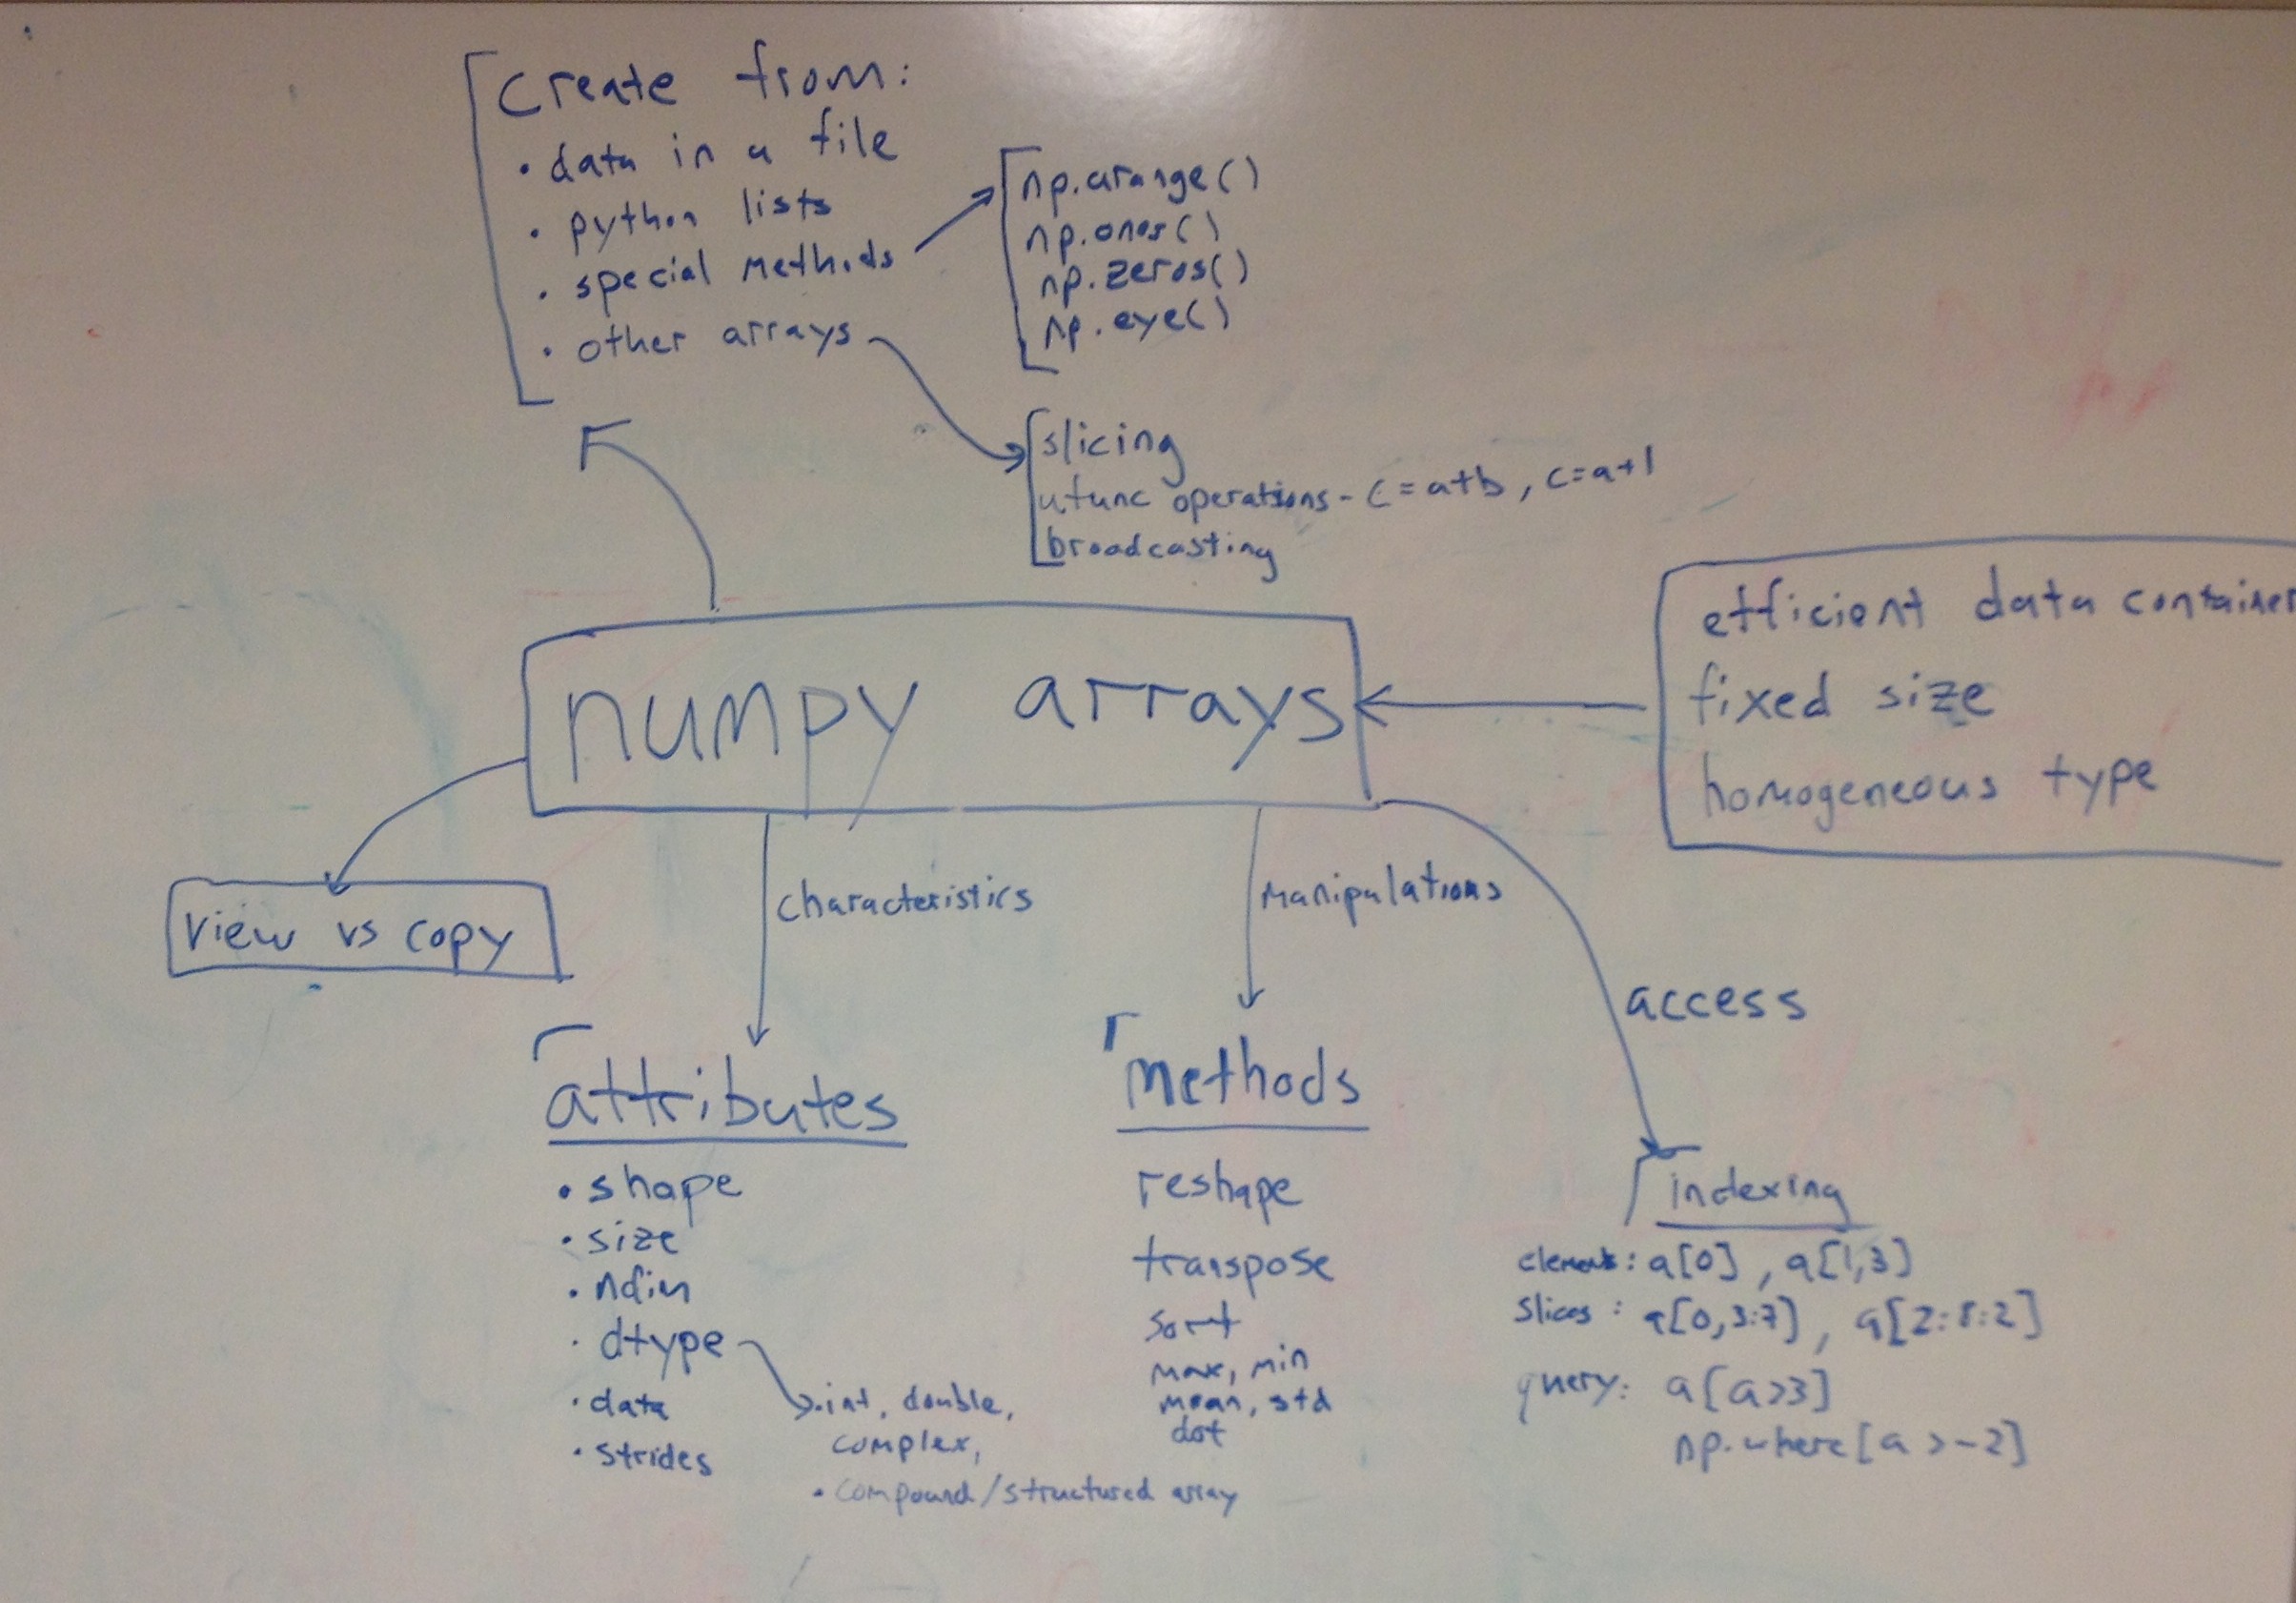 create from:
• data in a file
• python lists
• special methods
• other arrays
np.arange()
np.ones()
np.zeros()
np.eye()
slicing
ufunc operations - c=a+b, c=a+1
broadcasting
numpy arrays
efficient data container
fixed size
homogeneous type
view vs copy
characteristics
manipulations
access
attributes
• shape
• size
• ndim
• dtype
• data
• strides
• int, double,
complex,
• compound/structured array
methods
reshape
transpose
sort
max, min
mean, std
dot
indexing
element: a[0], a[1,3]
slices: a[0,3:7], a[2:8:2]
query: a[a>3]
np.where[a>-2]